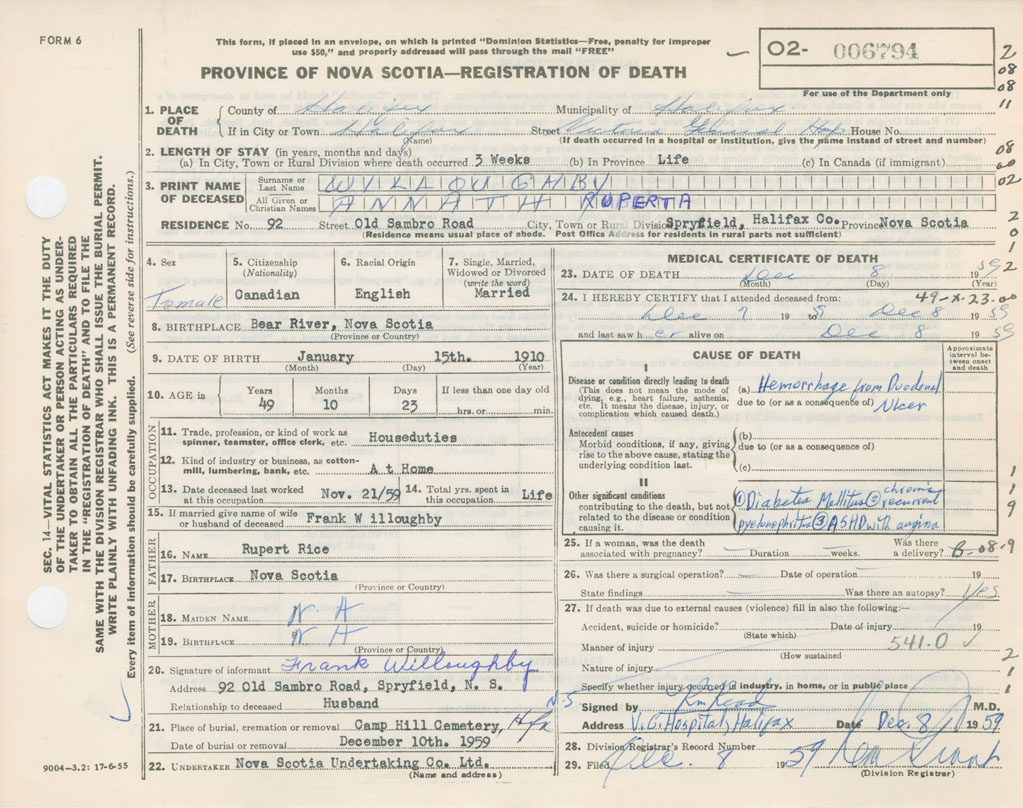 FORM 6
This form, if placed in an envelope, on which is printed "Dominion Statistics—Free, penalty for improper
use $50," and properly addressed will pass through the mail "FREE"
PROVINCE OF NOVA SCOTIA—REGISTRATION OF DEATH
O2- 006794
For use of the Department only
2
08
08
11
08
00
02
2
0
1
2
SEC. 14—VITAL STATISTICS ACT MAKES IT THE DUTY
OF THE UNDERTAKER OR PERSON ACTING AS UNDER-
TAKER TO OBTAIN ALL THE PARTICULARS REQUIRED
IN THE "REGISTRATION OF DEATH" AND TO FILE THE
SAME WITH THE DIVISION REGISTRAR WHO SHALL ISSUE THE BURIAL PERMIT.
WRITE PLAINLY WITH UNFADING INK. THIS IS A PERMANENT RECORD.
Every item of information should be carefully supplied. (See reverse side for instructions.)
1. PLACE OF DEATH County of Halifax Municipality of Halifax
If in City or Town Halifax Street Victoria General Hosp House No.
(Name) (If death occurred in a hospital or institution, give the name instead of street and number)
2. LENGTH OF STAY (in years, months and days)
(a) In City, Town or Rural Division where death occurred 3 Weeks (b) In Province Life (c) In Canada (if immigrant)
3. PRINT NAME OF DECEASED Surname or Last Name WILLOUGHBY
All Given or Christian Names ANNATH RUPERTA
RESIDENCE No. 92 Street Old Sambro Road City, Town or Rural Division Spryfield, Halifax Co. Province Nova Scotia
(Residence means usual place of abode. Post Office Address for residents in rural parts not sufficient)
4. Sex 5. Citizenship (Nationality) 6. Racial Origin 7. Single, Married, Widowed or Divorced (write the word)
Female Canadian English Married
8. BIRTHPLACE Bear River, Nova Scotia
(Province or Country)
9. DATE OF BIRTH January 15th. 1910
(Month) (Day) (Year)
10. AGE in Years Months Days If less than one day old
49 10 23 hrs. or min.
OCCUPATION
11. Trade, profession, or kind of work as spinner, teamster, office clerk, etc. Houseduties
12. Kind of industry or business, as cotton-mill, lumbering, bank, etc. At Home
13. Date deceased last worked at this occupation Nov. 21/59 14. Total yrs. spent in this occupation Life
15. If married give name of wife or husband of deceased Frank W illoughby
FATHER
16. NAME Rupert Rice
17. BIRTHPLACE Nova Scotia
(Province or Country)
MOTHER
18. MAIDEN NAME N A
19. BIRTHPLACE N A
(Province or Country)
20. Signature of informant Frank Willoughby
Address 92 Old Sambro Road, Spryfield, N. S.
Relationship to deceased Husband N-S
21. Place of burial, cremation or removal Camp Hill Cemetery, Hfx
Date of burial or removal December 10th. 1959
22. UNDERTAKER Nova Scotia Undertaking Co. Ltd.
(Name and address)
9004-3.2: 17-6-55
MEDICAL CERTIFICATE OF DEATH
23. DATE OF DEATH Dec 8 1959
(Month) (Day) (Year)
24. I HEREBY CERTIFY that I attended deceased from: 49-X-23.00
Dec 7 19 5 to Dec 8 1959
and last saw her alive on Dec 8 1959
CAUSE OF DEATH
Approximate interval between onset and death
I
Disease or condition directly leading to death
(This does not mean the mode of dying, e.g., heart failure, asthenia, etc. It means the disease, injury, or complication which caused death.)
(a) Hemorrhage from Duodenal
due to (or as a consequence of) Ulcer
Antecedent causes
Morbid conditions, if any, giving rise to the above cause, stating the underlying condition last.
(b)
due to (or as a consequence of)
(c)
II
Other significant conditions
contributing to the death, but not related to the disease or condition causing it.
① Diabetes Mellitus ② chronic recurrent
pyelonephritis ③ ASHD with angina
1
1
9
25. If a woman, was the death associated with pregnancy? Duration weeks. Was there a delivery? B-08-9
26. Was there a surgical operation? Date of operation 19
State findings Was there an autopsy? Yes
27. If death was due to external causes (violence) fill in also the following:—
Accident, suicide or homicide? Date of injury 19
(State which)
Manner of injury 541.0
(How sustained)
Nature of injury
Specify whether injury occurred in industry, in home, or in public place
2
1
1
Signed by M.D.
Address V. G. Hospital, Halifax Date Dec. 8 1959
28. Division Registrar's Record Number
29. Filed Dec. 8 1959
(Division Registrar)